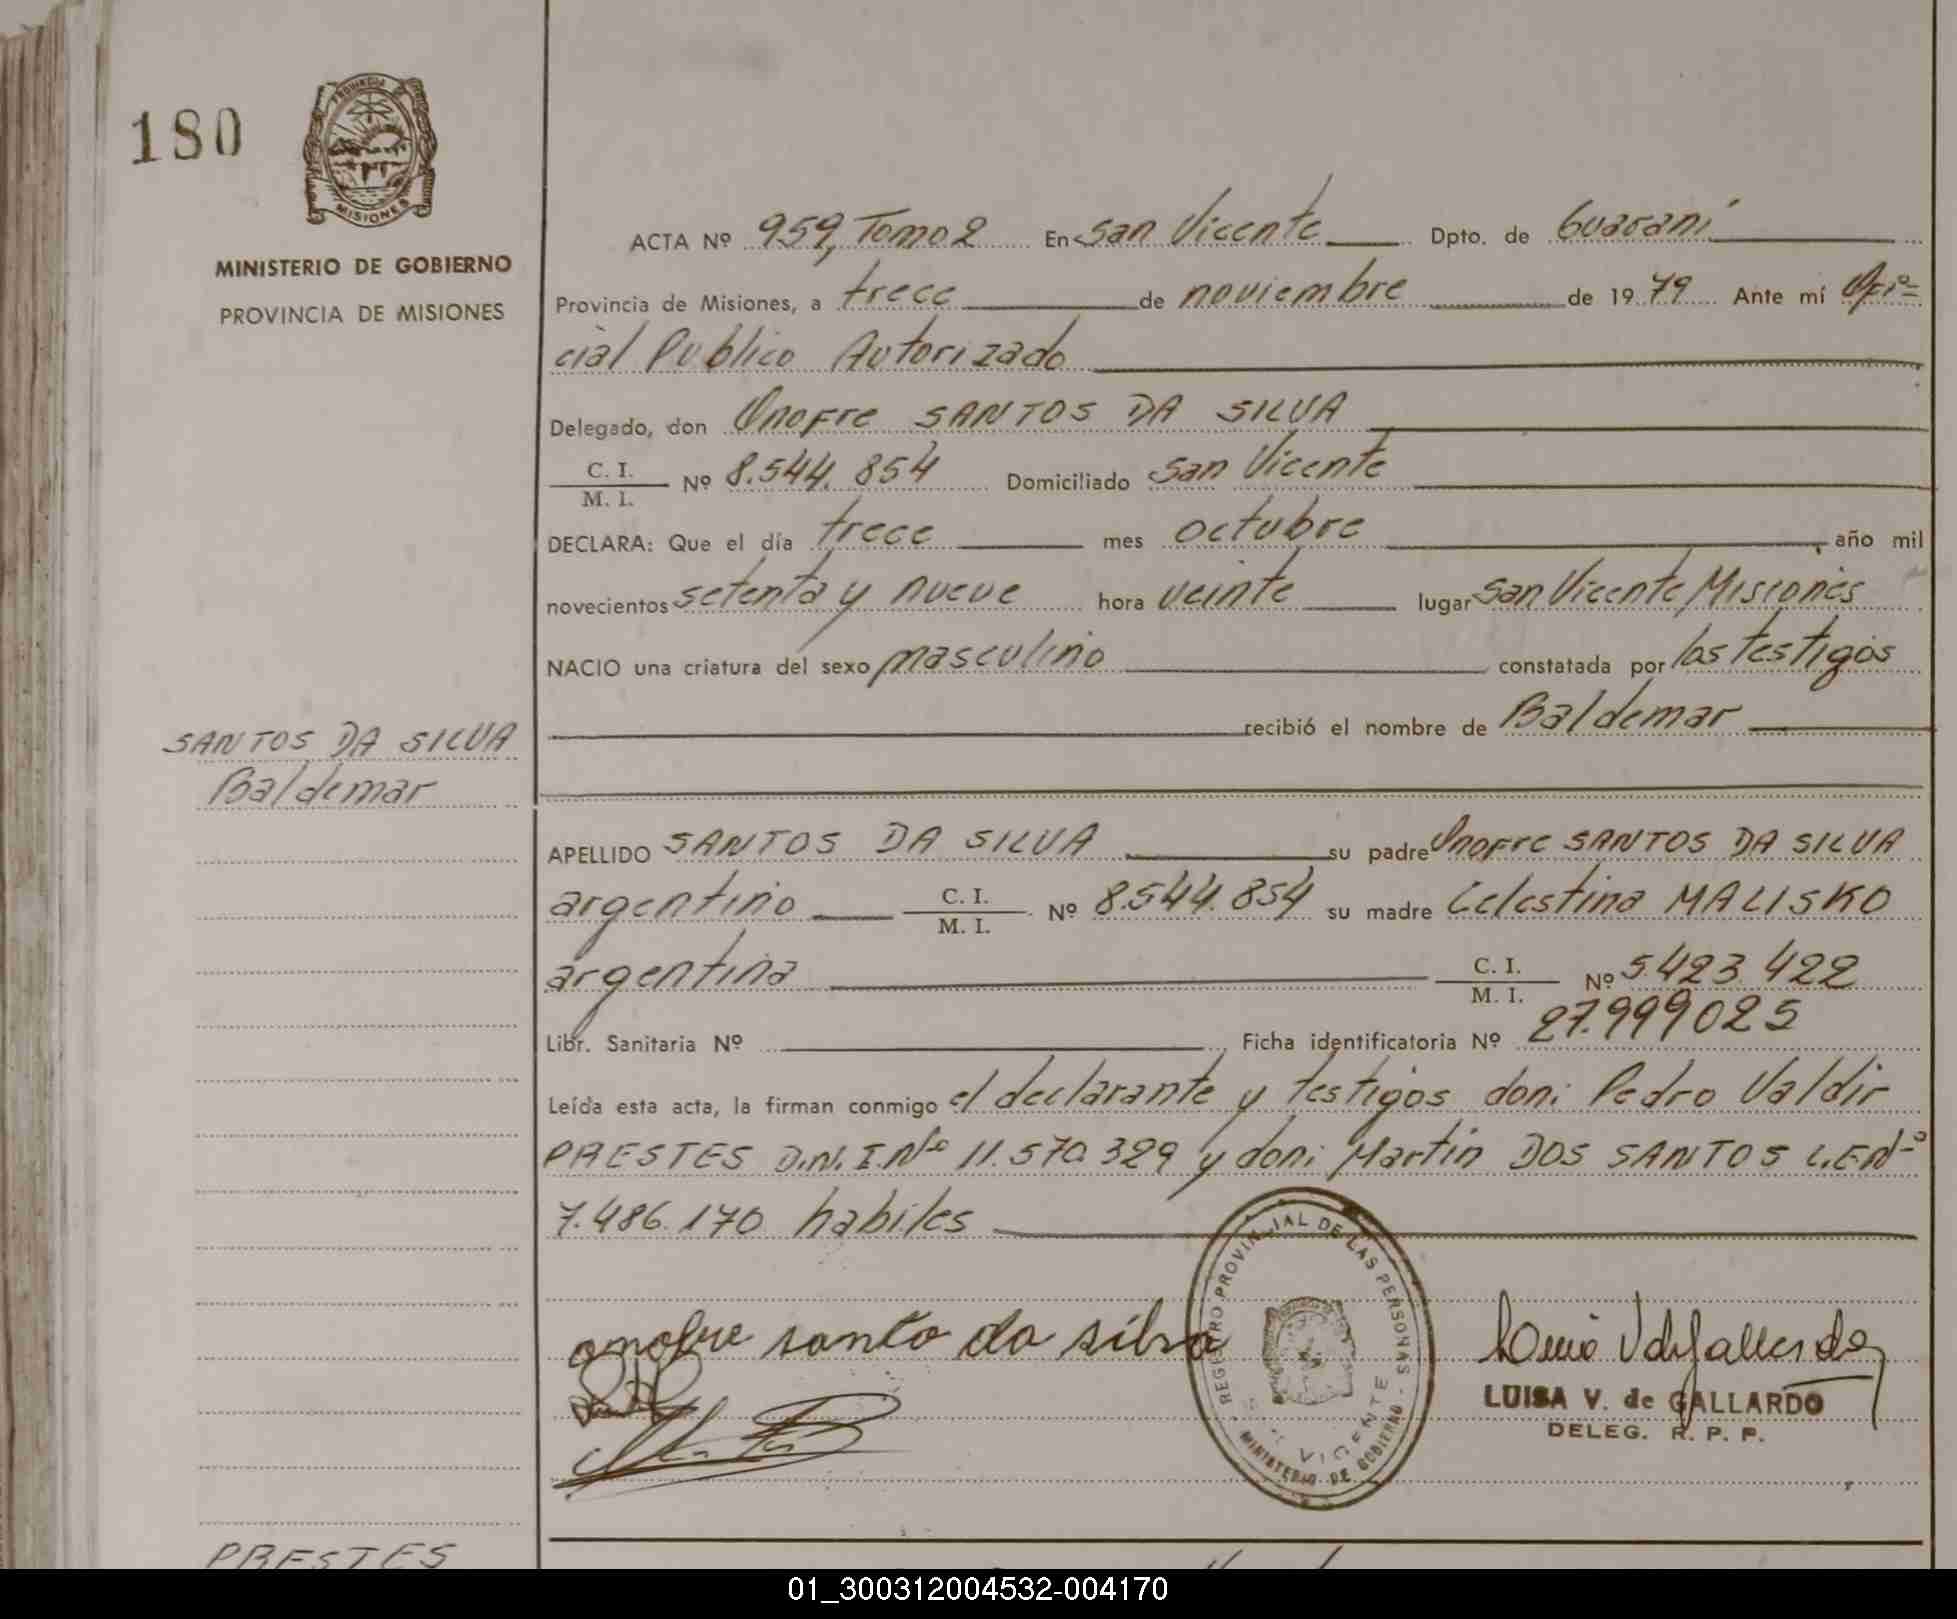 180
PROVINCIA DE
MISIONES
MINISTERIO DE GOBIERNO
PROVINCIA DE MISIONES
ACTA Nº 959, Tomo 2 En San Vicente Dpto. de Guaraní
Provincia de Misiones, a trece de noviembre de 1979 Ante mí Ofi=
cial Publico Autorizado
Delegado, don Onofre SANTOS DA SILVA
C. I.
M. I. Nº 8.544.854 Domiciliado San Vicente
DECLARA: Que el día trece mes octubre, año mil
novecientos setenta y nueve hora veinte lugar San Vicente Misiones
NACIO una criatura del sexo masculino constatada por los testigos
recibió el nombre de Baldemar
SANTOS DA SILVA
Baldemar
APELLIDO SANTOS DA SILVA su padre Onofre SANTOS DA SILVA
argentino C. I.
M. I. Nº 8.544.854 su madre Celestina MALISKO
argentina C. I.
M. I. Nº 5.423.422
Libr. Sanitaria Nº Ficha identificatoria Nº 27.999025
Leída esta acta, la firman conmigo el declarante y testigos don: Pedro Valdir
PRESTES D.N.I.Nº 11.570.329 y don: Martin DOS SANTOS L.E.Nº
7.486.170 habiles
onofre santo da silva
REGISTRO PROVINCIAL DE LAS PERSONAS
VICENTE
MINISTERIO DE GOBIERNO
LUISA V. de GALLARDO
DELEG. R. P. P.
PRESTES
01_300312004532-004170